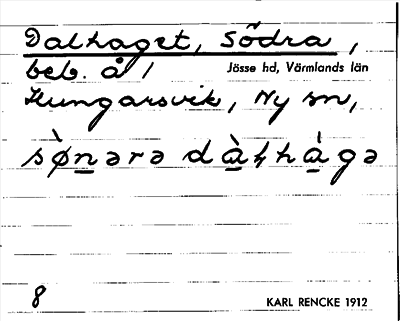 Dalhaget, Södra,
beb. å / Jösse hd, Värmlands län
Hungarsvik, Ny sn,
sø̀nərə dàɫhàgə
8 KARL RENCKE 1912